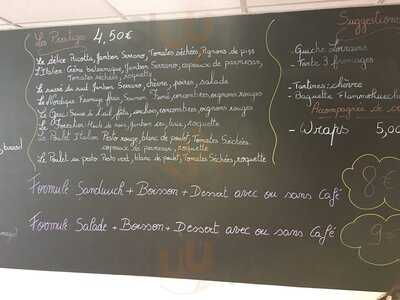 Le Prestige 4,50€
Le délice Ricotta, Jambon Serrano, Tomates séchées, Pignons de pins
L'Italien Crème balsamique, Jambon Serrano, copeaux de parmesan,
Tomates séchées, roquette
Le sucré du sud Jambon Serrano, chèvre, poires, salade
Le Nordique Fromage frais, Saumon Fumé, oncombres, oignons rouges
Le Grec Sauce à l'ail, féta, anchois, concombres, oignons rouges
Le Forestier Huile de noix, Jambon, roquette
Le Poulet Italien Pesto rouge, blanc de poulet, Tomates Séchées
copeaux de parmesan, roquette
Le Poulet au pesto Pesto vert, blanc de poulet, Tomates Séchées, roquette
Formule Sandwich + Boisson + Dessert avec ou sans Café
8€
Formule Salade + Boisson + Dessert avec ou sans Café
9€
Suggestions
- Quiche Lorraine
- Tarte 3 fromages
- Tartines chèvre
- Baguette Flammekueche
Accompagnée de
- Wraps 5,00